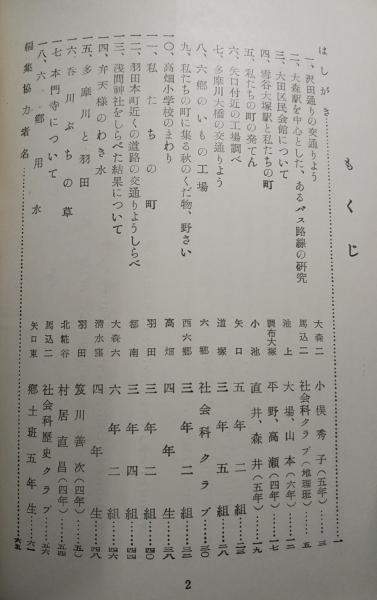 もくじ
はしがき……一
一、沢田通りの交通りよう 大森二 小俣秀子(五年)……二
二、大森駅を中心とした、あるバス路線の研究 馬込二 社会科クラブ(地理班)……五
三、大田区民会館について 池上 大場、山本(六年)……一二
四、雪谷大塚駅と私たちの町 調布大塚 平野、高瀬(四年)……一七
五、私たちの町の発てん 小池 直井、森井(五年)……一九
六、矢口付近の工場調べ 矢口 五年二組……二三
七、多摩川大橋の交通りよう 道塚 三年五組……
八、六郷のいもの工場 六郷 社会科クラブ……三〇
九、私たちの町に集る秋のくだ物、野さい 西六郷 三年二組……
一〇、高畑小学校のまわり 高畑 四年生……三八
一一、私たちの町 羽田 三年二組……四〇
一二、羽田本町近くの道路の交通りようしらべ 都南 三年二組……四四
一三、浅間神社をしらべた結果について 大森六 六年二組……四六
一四、弁天様のわき水 清水窪 四年生……四八
一五、多摩川と羽田 羽田 笈川善次(四年)……五〇
一六、呑川ぶちの草 北糀谷 村居直昌(四年)……五四
一七、本門寺について 馬込二 社会科歴史クラブ……五六
一八、六郷用水 矢口東 郷土班五年生……六一
編集協力者名……六五
2